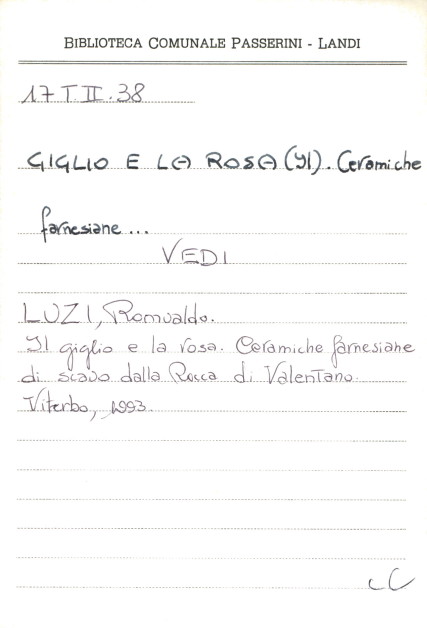 BIBLIOTECA COMUNALE PASSERINI - LANDI
17 T.II.38
GIGLIO E LA ROSA (Il). Ceramiche
farnesiane ...
VEDI
LUZI, Romualdo.
Il giglio e la rosa. Ceramiche farnesiane
di scavo dalla Rocca di Valentano.
Viterbo, 1993.